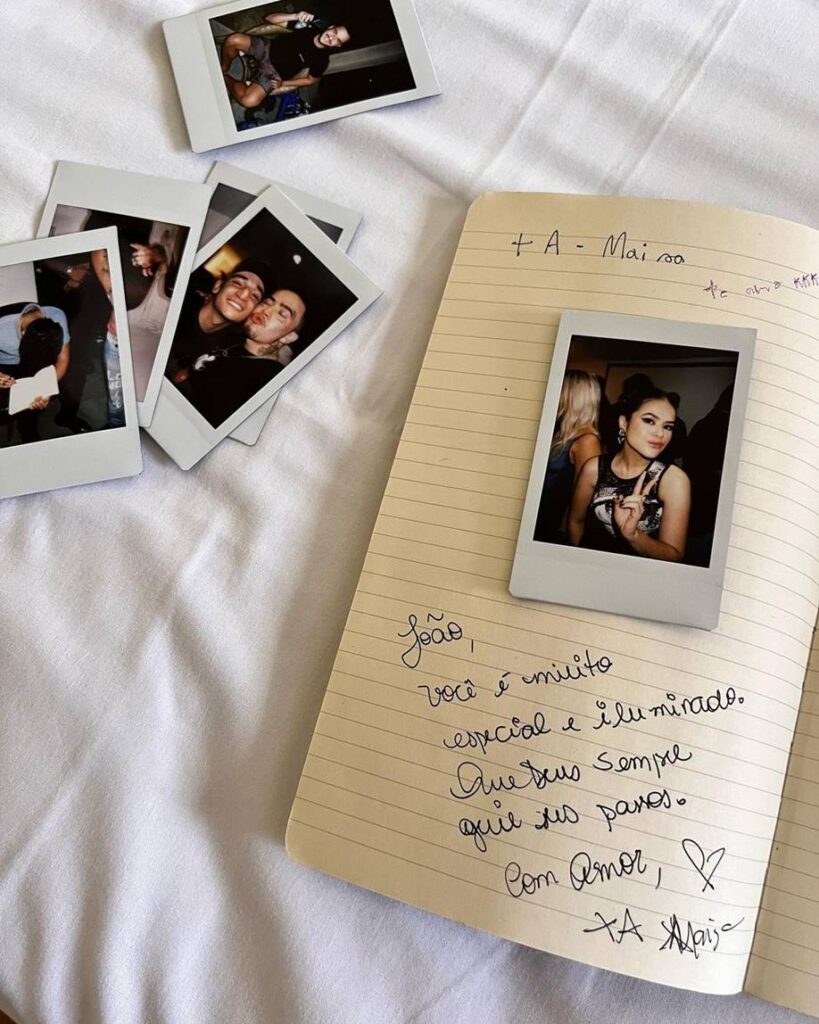 + A - Maisa
te amo KKK
João,
você é muito
especial e iluminado.
Que Deus sempre
guie seus passos.
Com amor, ♡
+A Maisa